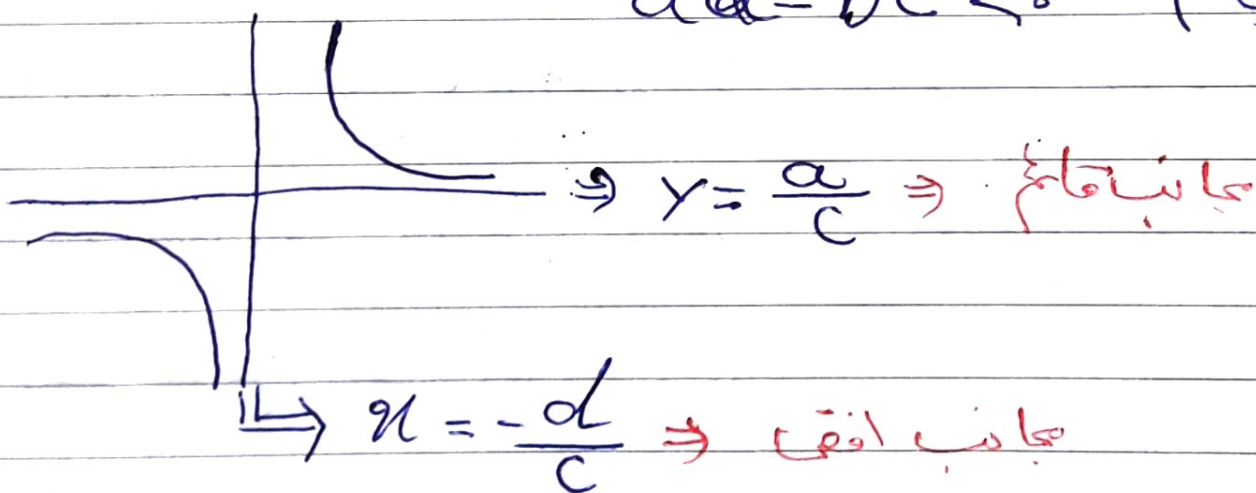 ad - bc < 0
⇒ y = a/c ⇒ مجانب قائم
⇒ x = -d/c ⇒ مجانب افقی